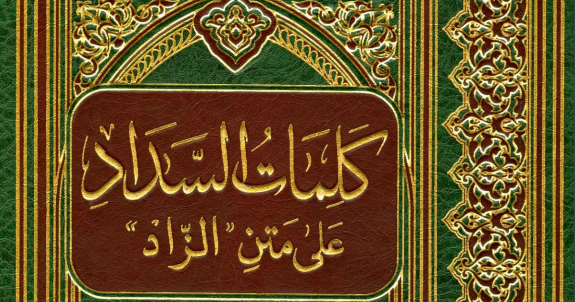 كَلِمَاتُ السَّدَادِ
عَلى مَتنِ "الزَّاد"